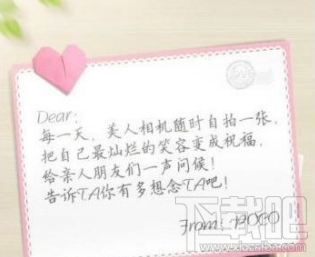 Dear:
每一天，美人相机随时自拍一张，
把自己最灿烂的笑容变成祝福，
给亲人朋友们一声问候！
告诉TA你有多想念TA吧！
From: POCO
下载吧